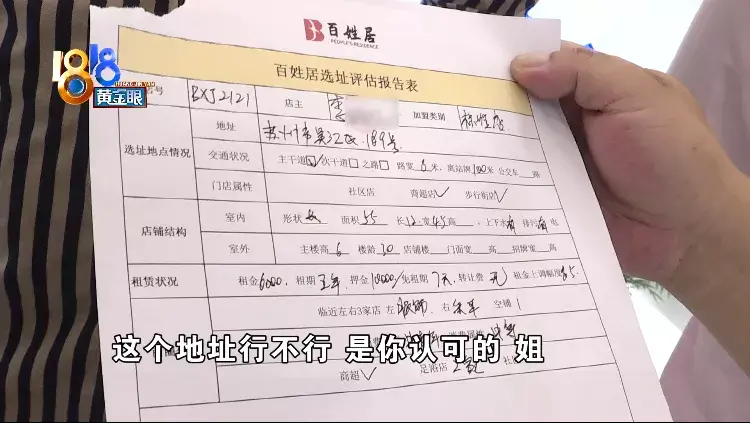 百姓居
PEOPLE'S RESIDENCE
1818
黄金眼
百姓居选址评估报告表
号 BXJ2121 店主 李 加盟类别 标准店
选址地点情况
地址 苏州市吴江区 189号
交通状况 主干道☑次干道□之路□ 路宽6米,离站牌100米 公交车 路
门店属性 社区店 商超店✓ 步行街店✓
店铺结构
室内 形状 面积55 长12宽4.5高 ,上下水有 排污有 电
室外 主楼高6 楼龄10 店铺楼 门面宽 高 招牌宽 高
租赁状况 租金6000,租期 年 押金10000/免租期7天,转让费 无 租金上调幅度
临近左右3家店 左 右 空铺1
消费属性
这个地址行不行 是你认可的 姐
商超✓ 足浴店 社